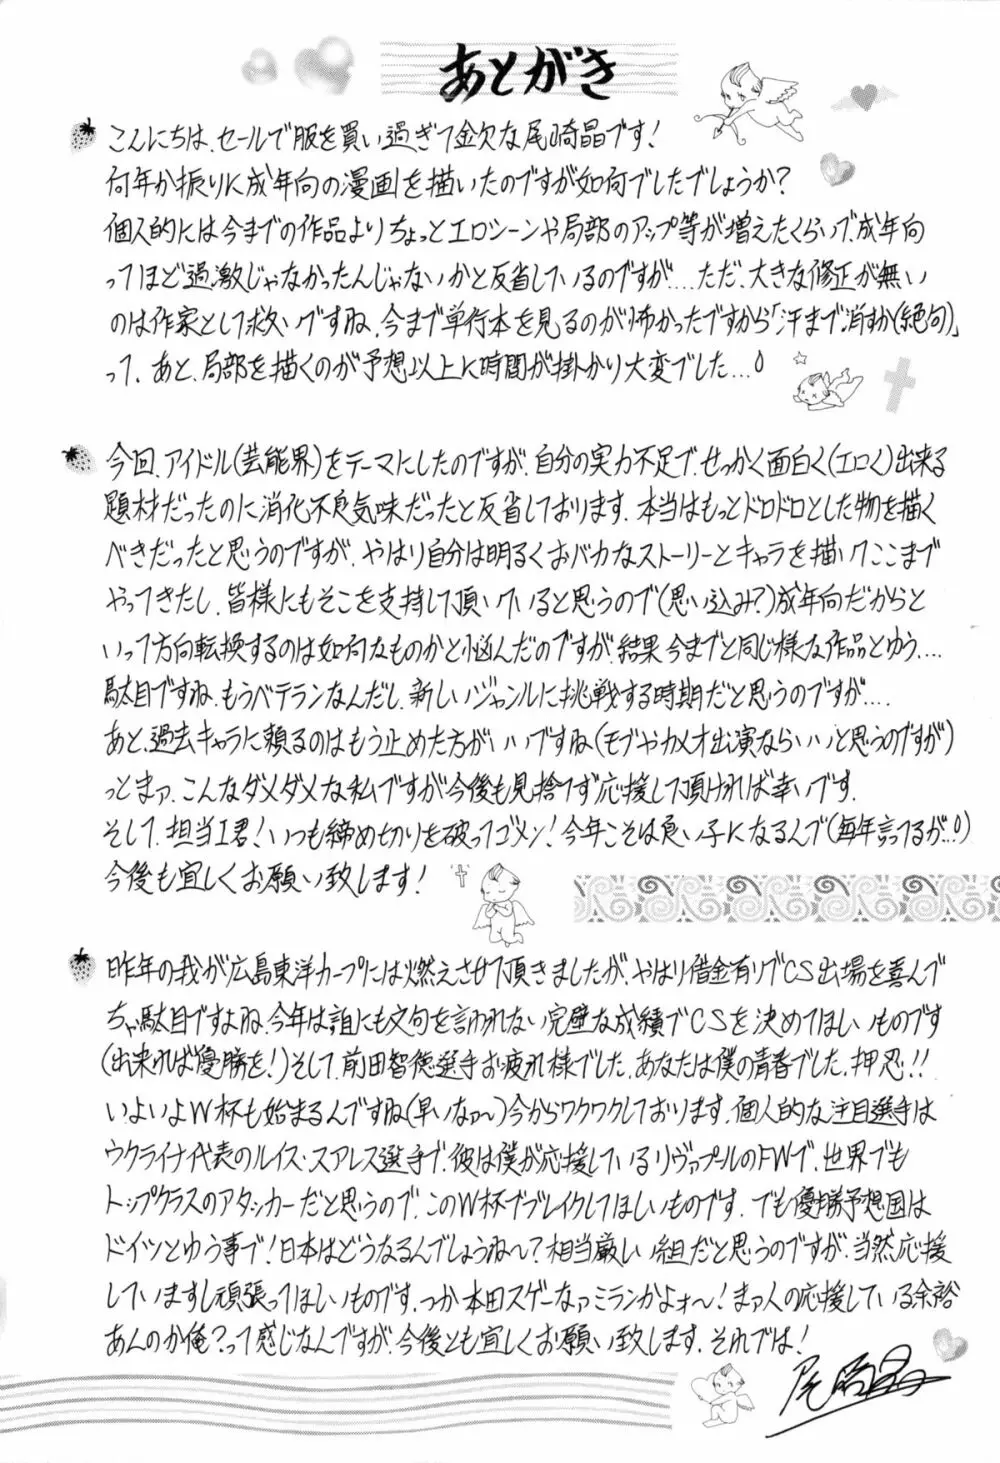 あとがき
こんにちは、セールで服を買い過ぎて金欠な尾崎晶です!
何年か振りに成年向の漫画を描いたのですが如何でしたでしょうか?
個人的には今までの作品よりちょっとエロシーンや局部のアップ等が増えたくらいで、成年向
ってほど過激じゃなかったんじゃないかと反省しているのですが....ただ、大きな修正が無い
のは作家として救いですね、今まで単行本を見るのが怖かったですから「汗まで消すか(絶句)」
って、あと、局部を描くのが予想以上に時間が掛かり大変でした...
今回、アイドル(芸能界)をテーマにしたのですが、自分の実力不足で、せっかく面白く(エロく)出来る
題材だったのに消化不良気味だったと反省しております、本当はもっとドロドロとした物を描く
べきだったと思うのですが、やはり自分は明るくおバカなストーリーとキャラを描いてここまで
やってきたし、皆様にもそこを支持して頂いていると思うので(思い込み?)成年向だからと
いって方向転換するのは如何なものかと悩んだのですが、結果今までと同じ様な作品とゆう....
駄目ですね、もうベテランなんだし、新しいジャンルに挑戦する時期だと思うのですが....
あと、過去キャラに頼るのはもう止めた方がいいですね(モブやカメオ出演ならいいと思うのですが)
っとまァ、こんなダメダメな私ですが今後も見捨てず応援して頂ければ幸いです、
そして、担当I君!いつも締め切りを破ってゴメン!今年こそは良い子になるんで(毎年言ってるが...!)
今後も宜しくお願い致します!
昨年の我が広島東洋カープには燃えさせて頂きましたが、やはり借金有りでCS出場を喜んで
ちゃ駄目ですよね、今年は誰にも文句を言われない完璧な成績でCSを決めてほしいものです
(出来れば優勝を!)そして、前田智徳選手お疲れ様でした、あなたは僕の青春でした、押忍!!
いよいよW杯も始まるんですね(早いなァ〜)今からワクワクしております、個人的な注目選手は
ウクライナ代表のルイス・スアレス選手で、彼は僕が応援しているリヴァプールのFWで、世界でも
トップクラスのアタッカーだと思うので、このW杯でブレイクしてほしいものです、でも優勝予想国は
ドイツとゆう事で!日本はどうなるんでしょうね〜?相当厳しい組だと思うのですが、当然応援
していますし頑張ってほしいものです、つか本田スゲーなァミランかよォ〜!まァ人の応援している余裕
あんのか俺?って感じなんですが、今後とも宜しくお願い致します、それでは!
尾崎晶